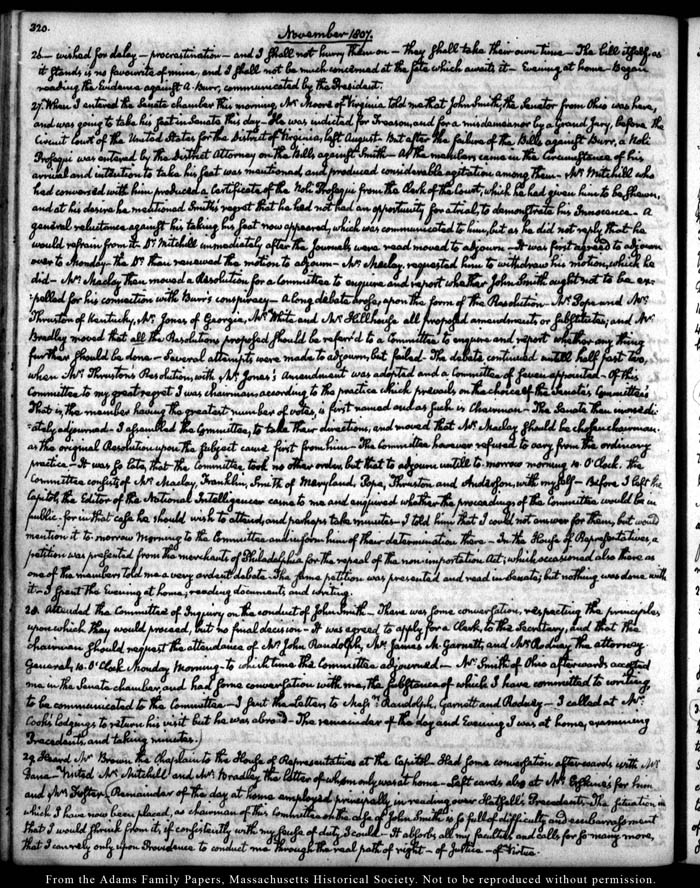 320.
November 1807.
26. — wished for delay — procrastination — and I shall not hurry them on — they shall take their own time — The bill itself as
it stands is no favourite of mine, and I shall not be much concerned at the fate which awaits it — Evening at home — Began
reading the Evidence against A. Burr, communicated by the President.
27. When I entered the Senate chamber this morning, Mr Moore of Virginia told me that John Smith, the Senator from Ohio was here,
and was going to take his seat in Senate this day — He was indicted for Treason, and for a misdemeanor by a Grand Jury, before the
Circuit Court of the United States for the District of Virginia, last August. But after the failure of the Bills against Burr, a Noli
Prosequi was entered by the District Attorney on the Bills against Smith — As the members came in the circumstance of his
arrival and intention to take his seat was mentioned, and produced considerable agitation among them — Mr Mitchill who
had conversed with him produced a Certificate of the Noli Prosequi from the Clerk of the Court, which he had given him to be shewn,
and at his desire he mentioned Smith's regret that he had not had an opportunity for a trial, to demonstrate his Innocence — A
general reluctance against his taking his seat now appeared, which was communicated to him, but as he did not reply that he
would refrain from it. Dr Mitchill immediately after the Journals were read moved to adjourn — It was first agreed to adjourn
over to Monday — the Dr then renewed the motion to adjourn — Mr Maclay requested him to withdraw his motion, which he
did — Mr Maclay then moved a Resolution for a Committee to enquire and report whether John Smith ought not to be ex-
:pelled for his connection with Burr's conspiracy — A long debate arose, upon the form of the Resolution — Mr Pope and Mr
Thruston of Kentucky, Mr Jones of Georgia, Mr White and Mr Hillhouse all proposed amendments or substitutes, and Mr
Bradley moved that all the Resolutions proposed should be referr'd to a Committee to enquire and report whether any thing
further should be done — Several attempts were made to adjourn, but failed — The debate continued untill half past two,
when Mr Thruston's Resolution, with Mr Jones's Amendment was adopted and a Committee of seven appointed — Of this
Committee to my great regret I was chairman, according to the practice which prevails, on the choice of the Senate's Committee's
That is, the member having the greatest number of votes, is first named and as such is Chairman — The Senate then immedi-
:ately adjourned — I assembled the Committee, to take their directions, and moved that Mr Maclay should be chosen chairman.
as the original Resolution upon the subject came first from him — The Committee however refused to vary from the ordinary
practice — It was so late, that the Committee took no other order but that to adjourn untill to-morrow morning 10. O'Clock. The
Committee consists of Mr Maclay, Franklin, Smith of Maryland, Pope, Thruston and Anderson, with myself — Before I left the
Capitol, the Editor of the National Intelligencer came to me and enquired whether the proceedings of the Committee would be in
public — for in that case he should wish to attend, and perhaps take minutes — I told him that I could not answer for them, but would
mention it to-morrow Morning to the Committee and inform him of their determination there — In the House of Representatives, a
petition was presented from the merchants of Philadelphia for the repeal of the non-importation Act; which occasioned also there as
one of the members told me a very ardent debate. The same petition was presented and read in Senate; but nothing was done with
it — I spent the Evening at home, reading documents, and writing.
28. Attended the Committee of Inquiry on the conduct of John Smith — There was some conversation, respecting the principles
upon which they would proceed, but no final decision — It was agreed to apply for a Clerk, to the Secretary, and that the
chairman should request the attendance of Mr John Randolph, Mr James M. Garnett, and Mr Rodney the attorney
General, 10. O'Clock Monday Morning — to which time the Committee adjourned — Mr Smith of Ohio afterwards accosted
me in the Senate chamber, and had some conversation with me, the substance of which I have committed to writing,
to be communicated to the Committee — I sent the letters to Messrs Randolph, Garnett and Rodney — I called at Mr
Cook's Lodgings to return his visit but he was abroad — The remainder of the day and Evening I was at home, examining
Precedents and taking minutes.
29. Heard Mr Brown, the Chaplain to the House of Representatives at the Capitol — Had some conversation afterwards with Mr
Dana — Visited Mr Mitchill and Mr Bradley the latter of whom only was at home — Left cards also at Mr for him
and Mr Foster. Remainder of the day at home employed principally in reading over Hatsell's Precedents. The situation in
which I have now been placed, as chairman of this Committee on the case of John Smith is so full of difficulty and embarrassment
that I would shrink from it, if consistently with my sense of duty, I could. — It absorbs all my faculties and calls for so many more,
that I can rely only upon Providence to conduct me through the real path of right — of Justice — of Virtue.
From the Adams Family Papers, Massachusetts Historical Society. Not to be reproduced without permission.